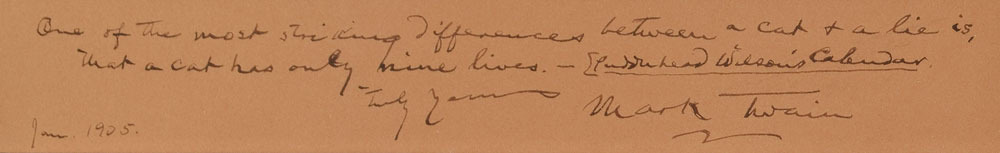 One of the most striking differences between a cat & a lie is,
that a cat has only nine lives. — Pudd'nhead Wilson's Calendar.
Truly Yours
Mark Twain
Jan. 1905.